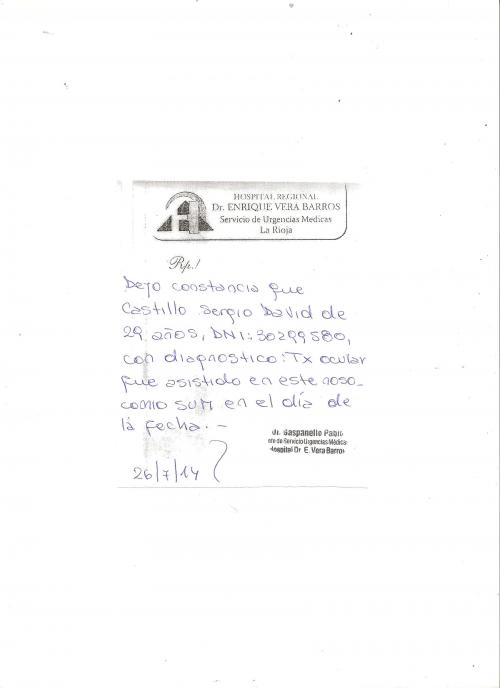 HOSPITAL REGIONAL
Dr. ENRIQUE VERA BARROS
Servicio de Urgencias Medicas
La Rioja
Rp.!
Dejo constancia que
Castillo Sergio David de
29 años, DNI: 30299580,
con diagnostico: Tx ocular
fue asistido en este noso-
comio SUM en el día de
lá fecha. -
26/7/14
Dr. Gaspanello Pablo
nte de Servicio Urgencias Médica
Hospital Dr E. Vera Barros